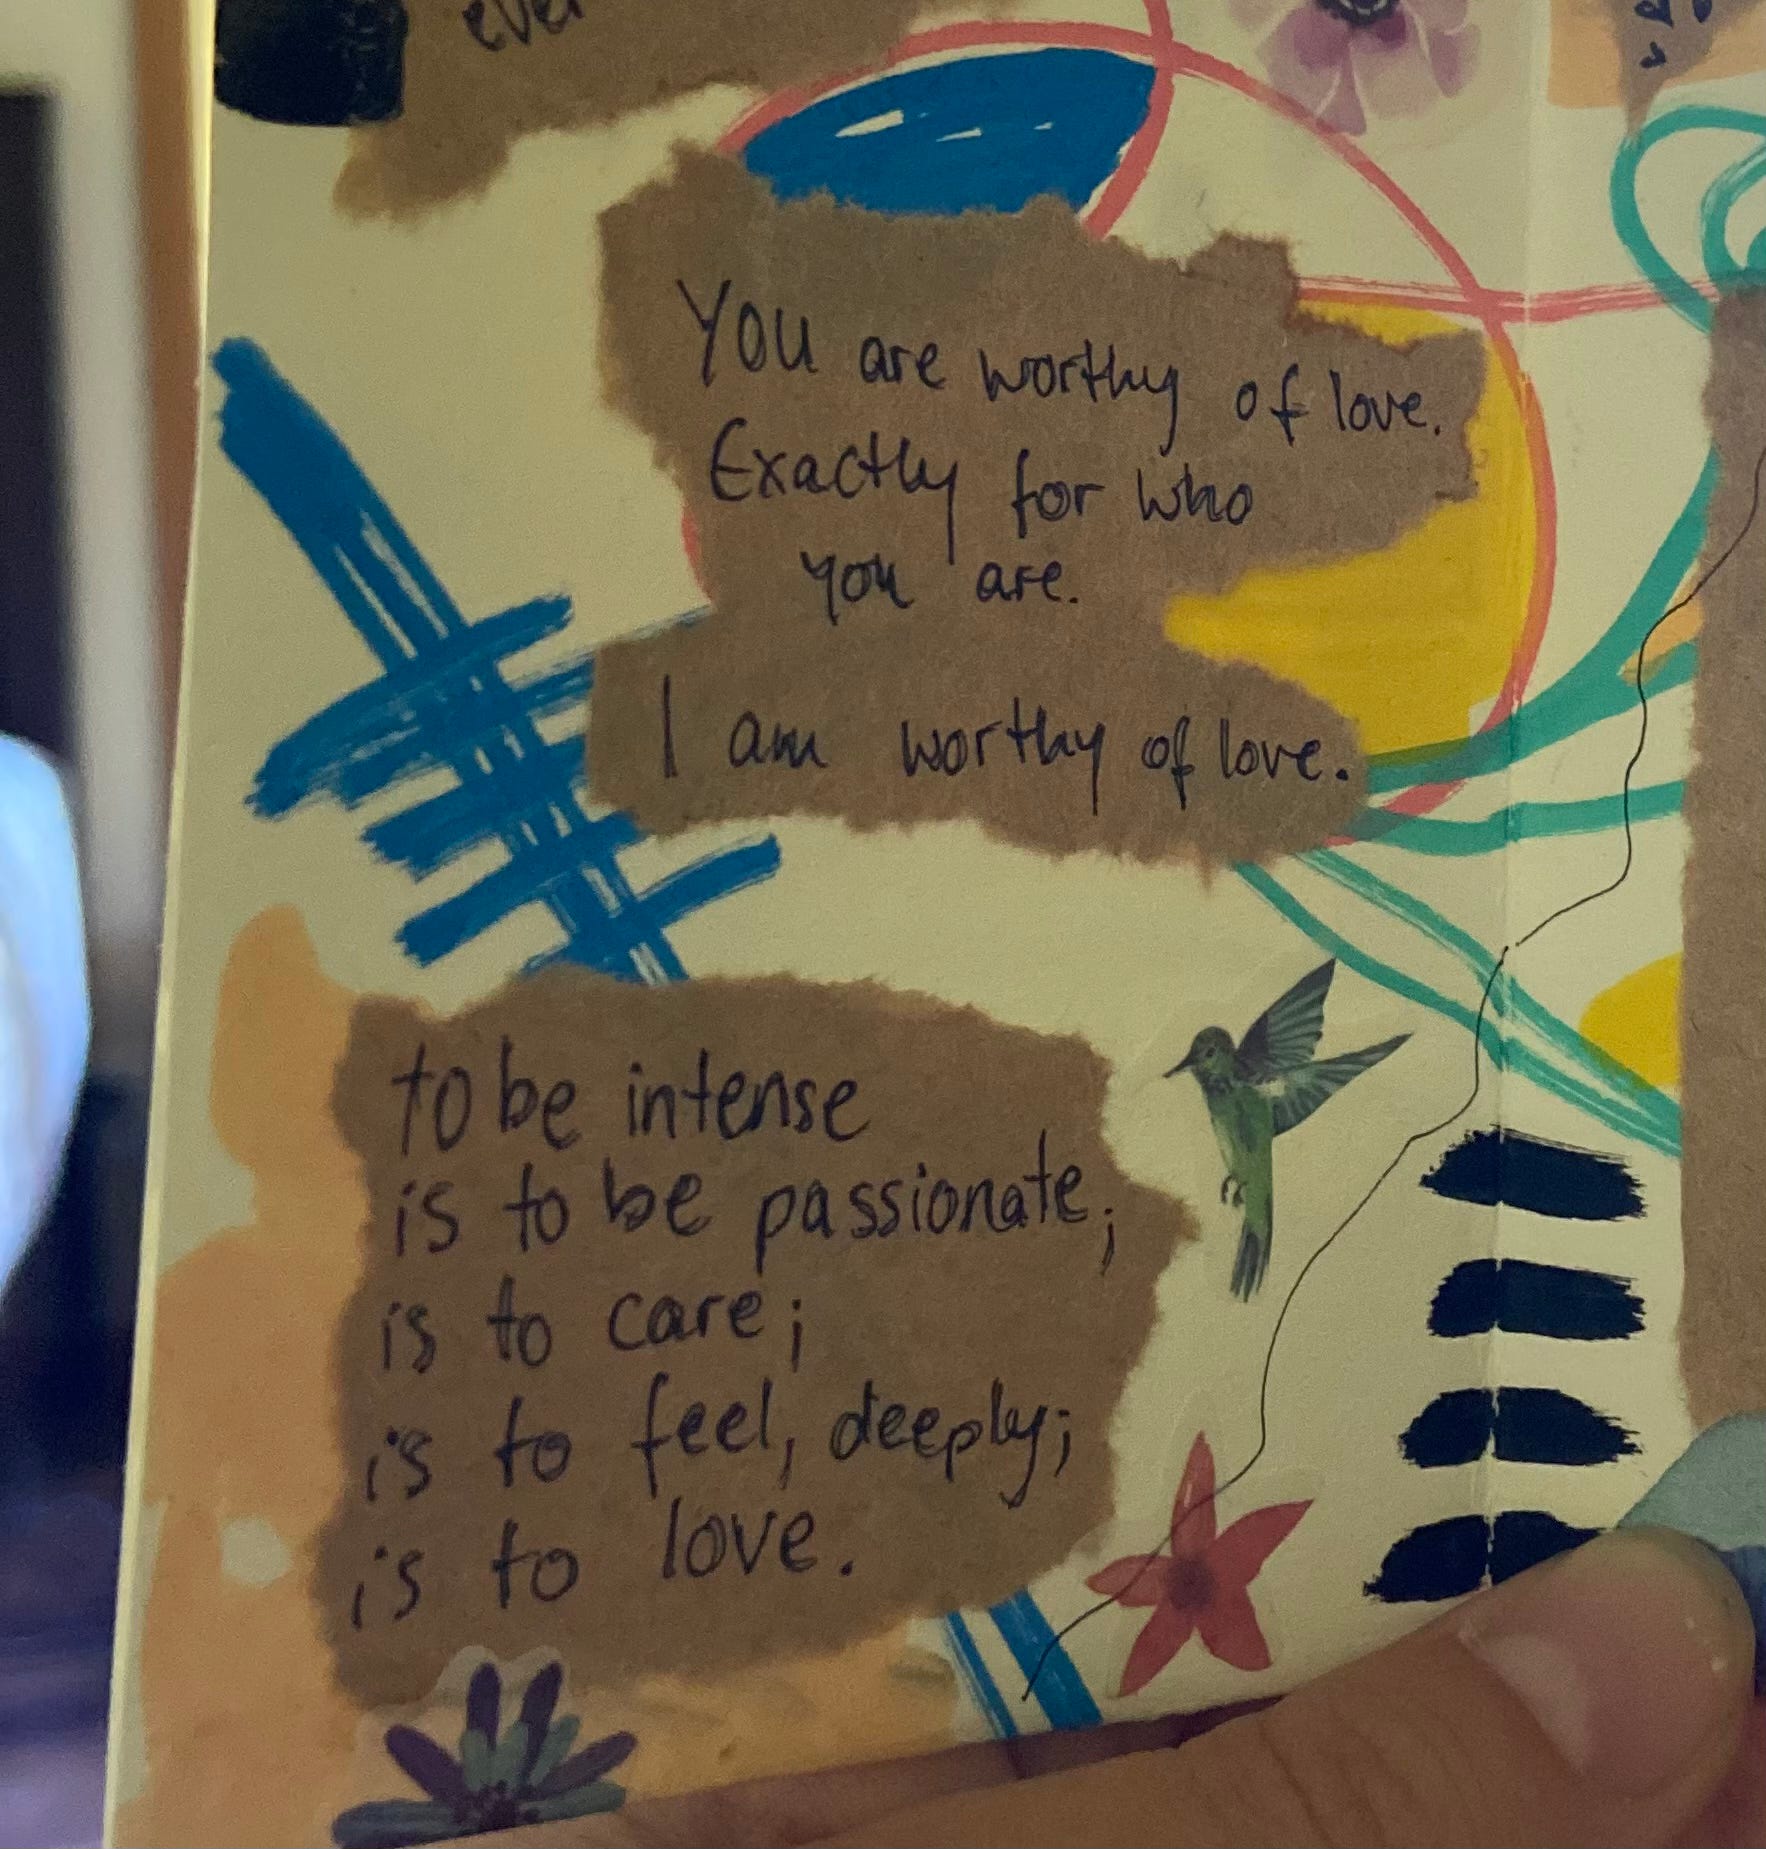 ever
You are worthy of love.
Exactly for who
you are.
I am worthy of love.
to be intense
is to be passionate;
is to care;
is to feel, deeply;
is to love.